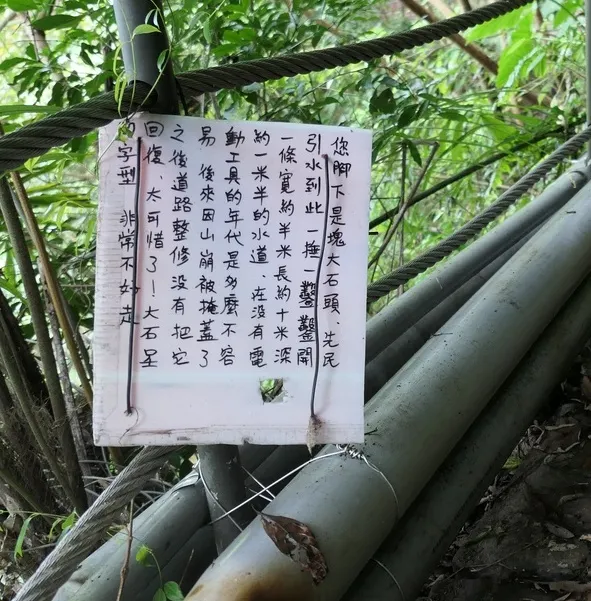 您腳下是塊大石頭、先民
引水到此一捶一鑿鑿開
一條寬約半米長約十米深
約一米半的水道、在沒有電
動工具的年代是多麼不容
易 後來因山崩被掩蓋了
之後道路整修沒有把它
回復、太可惜了!大石呈
字型 非常不好走